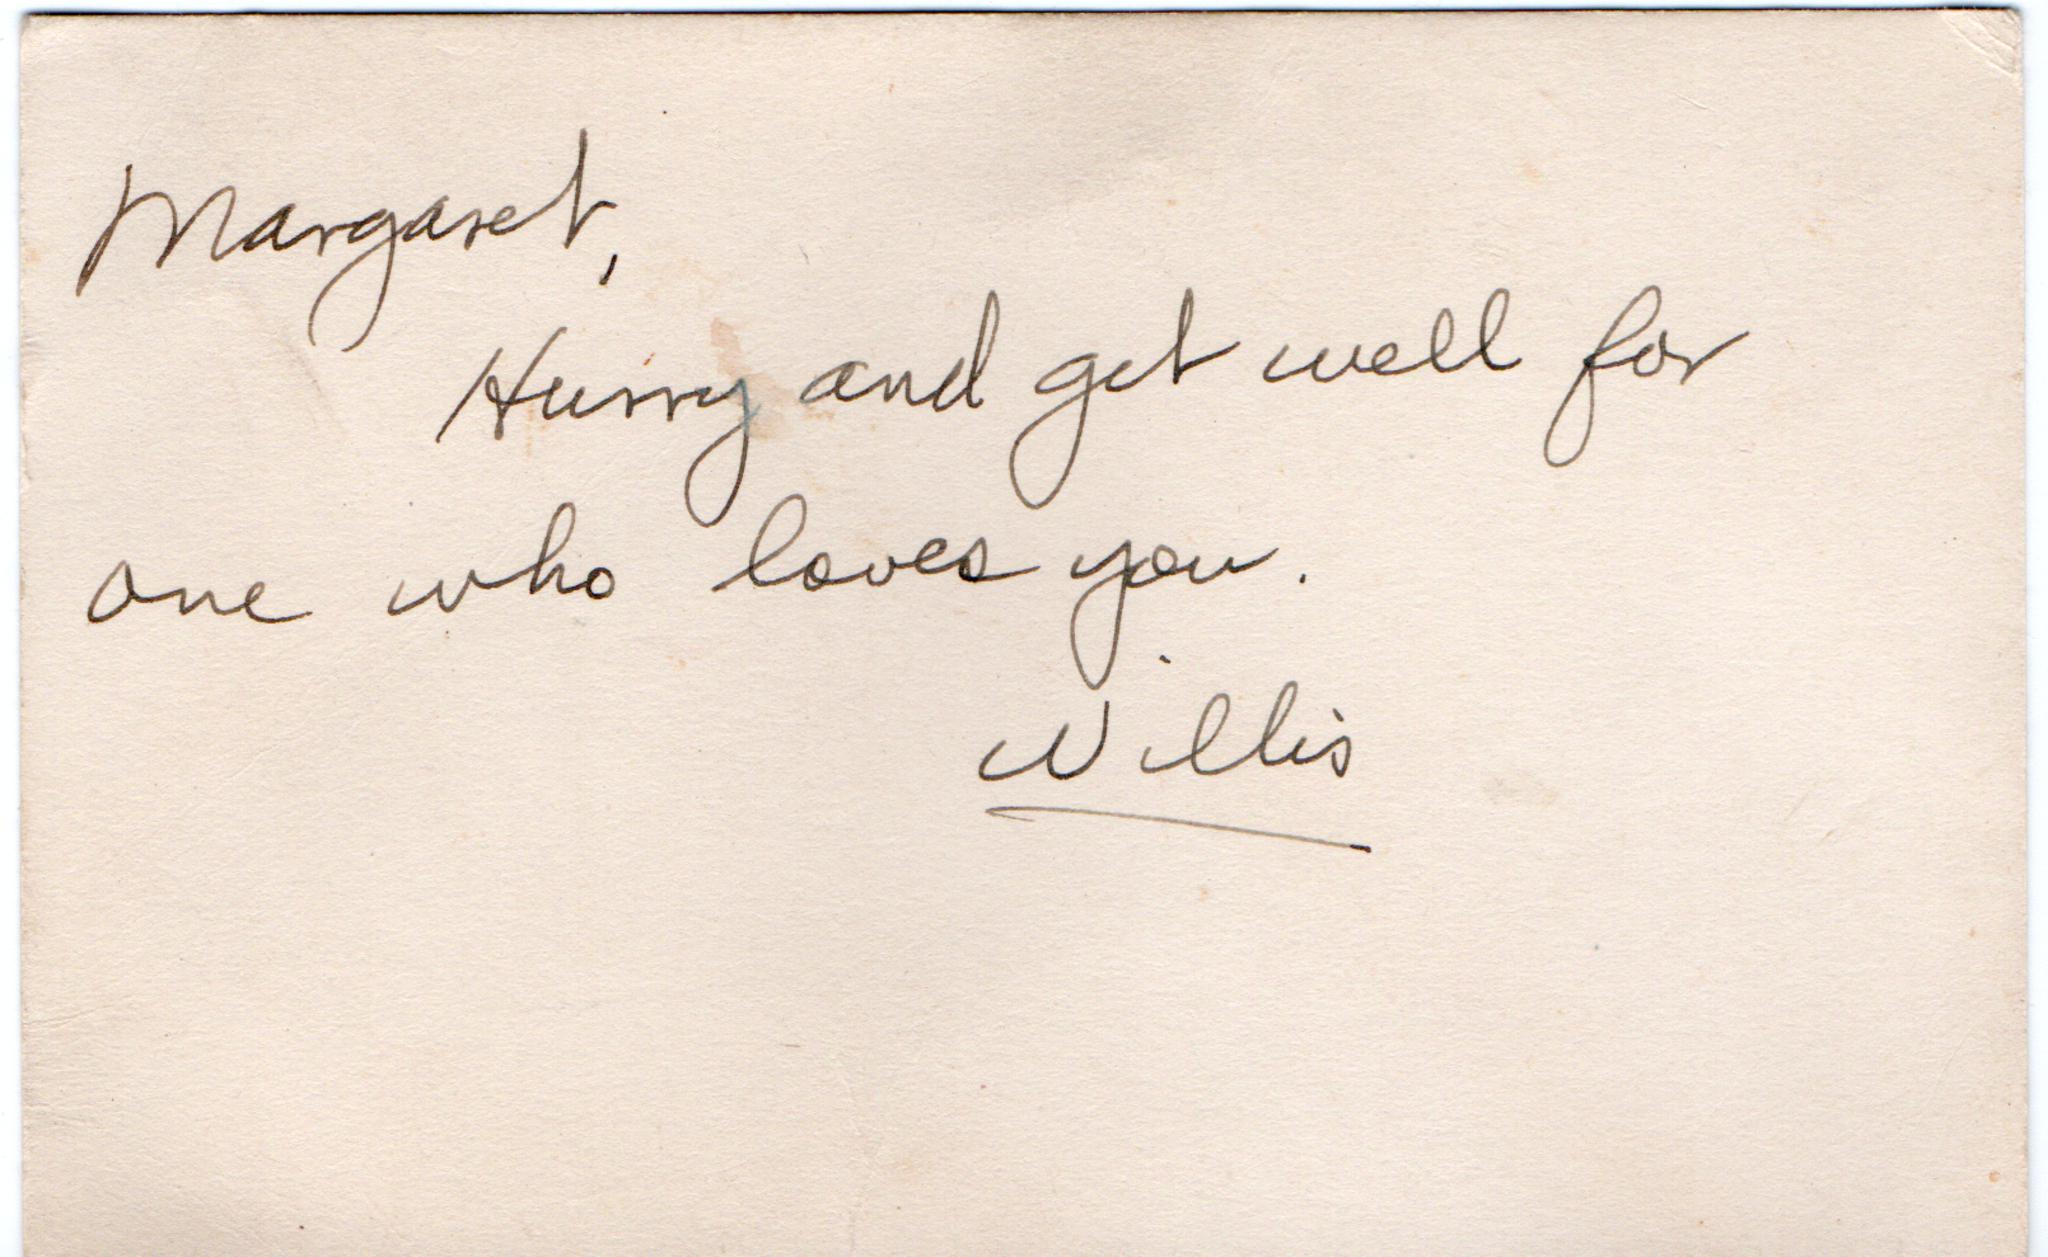 Margaret,
Hurry and get well for
one who loves you.
Willis